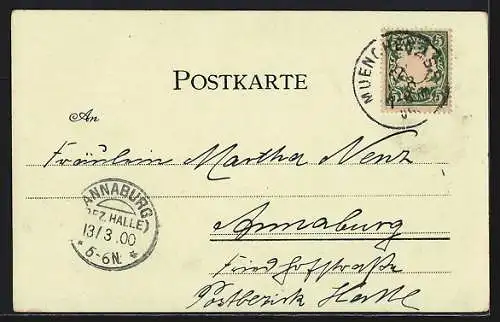 POSTKARTE
MUENCHEN
5 5
An
Fräulein Martha Nenz
Annaburg
Friedhofstraße
Postbezirk Halle
ANNABURG
(BEZ. HALLE)
13/3.00
* 5-6N. *